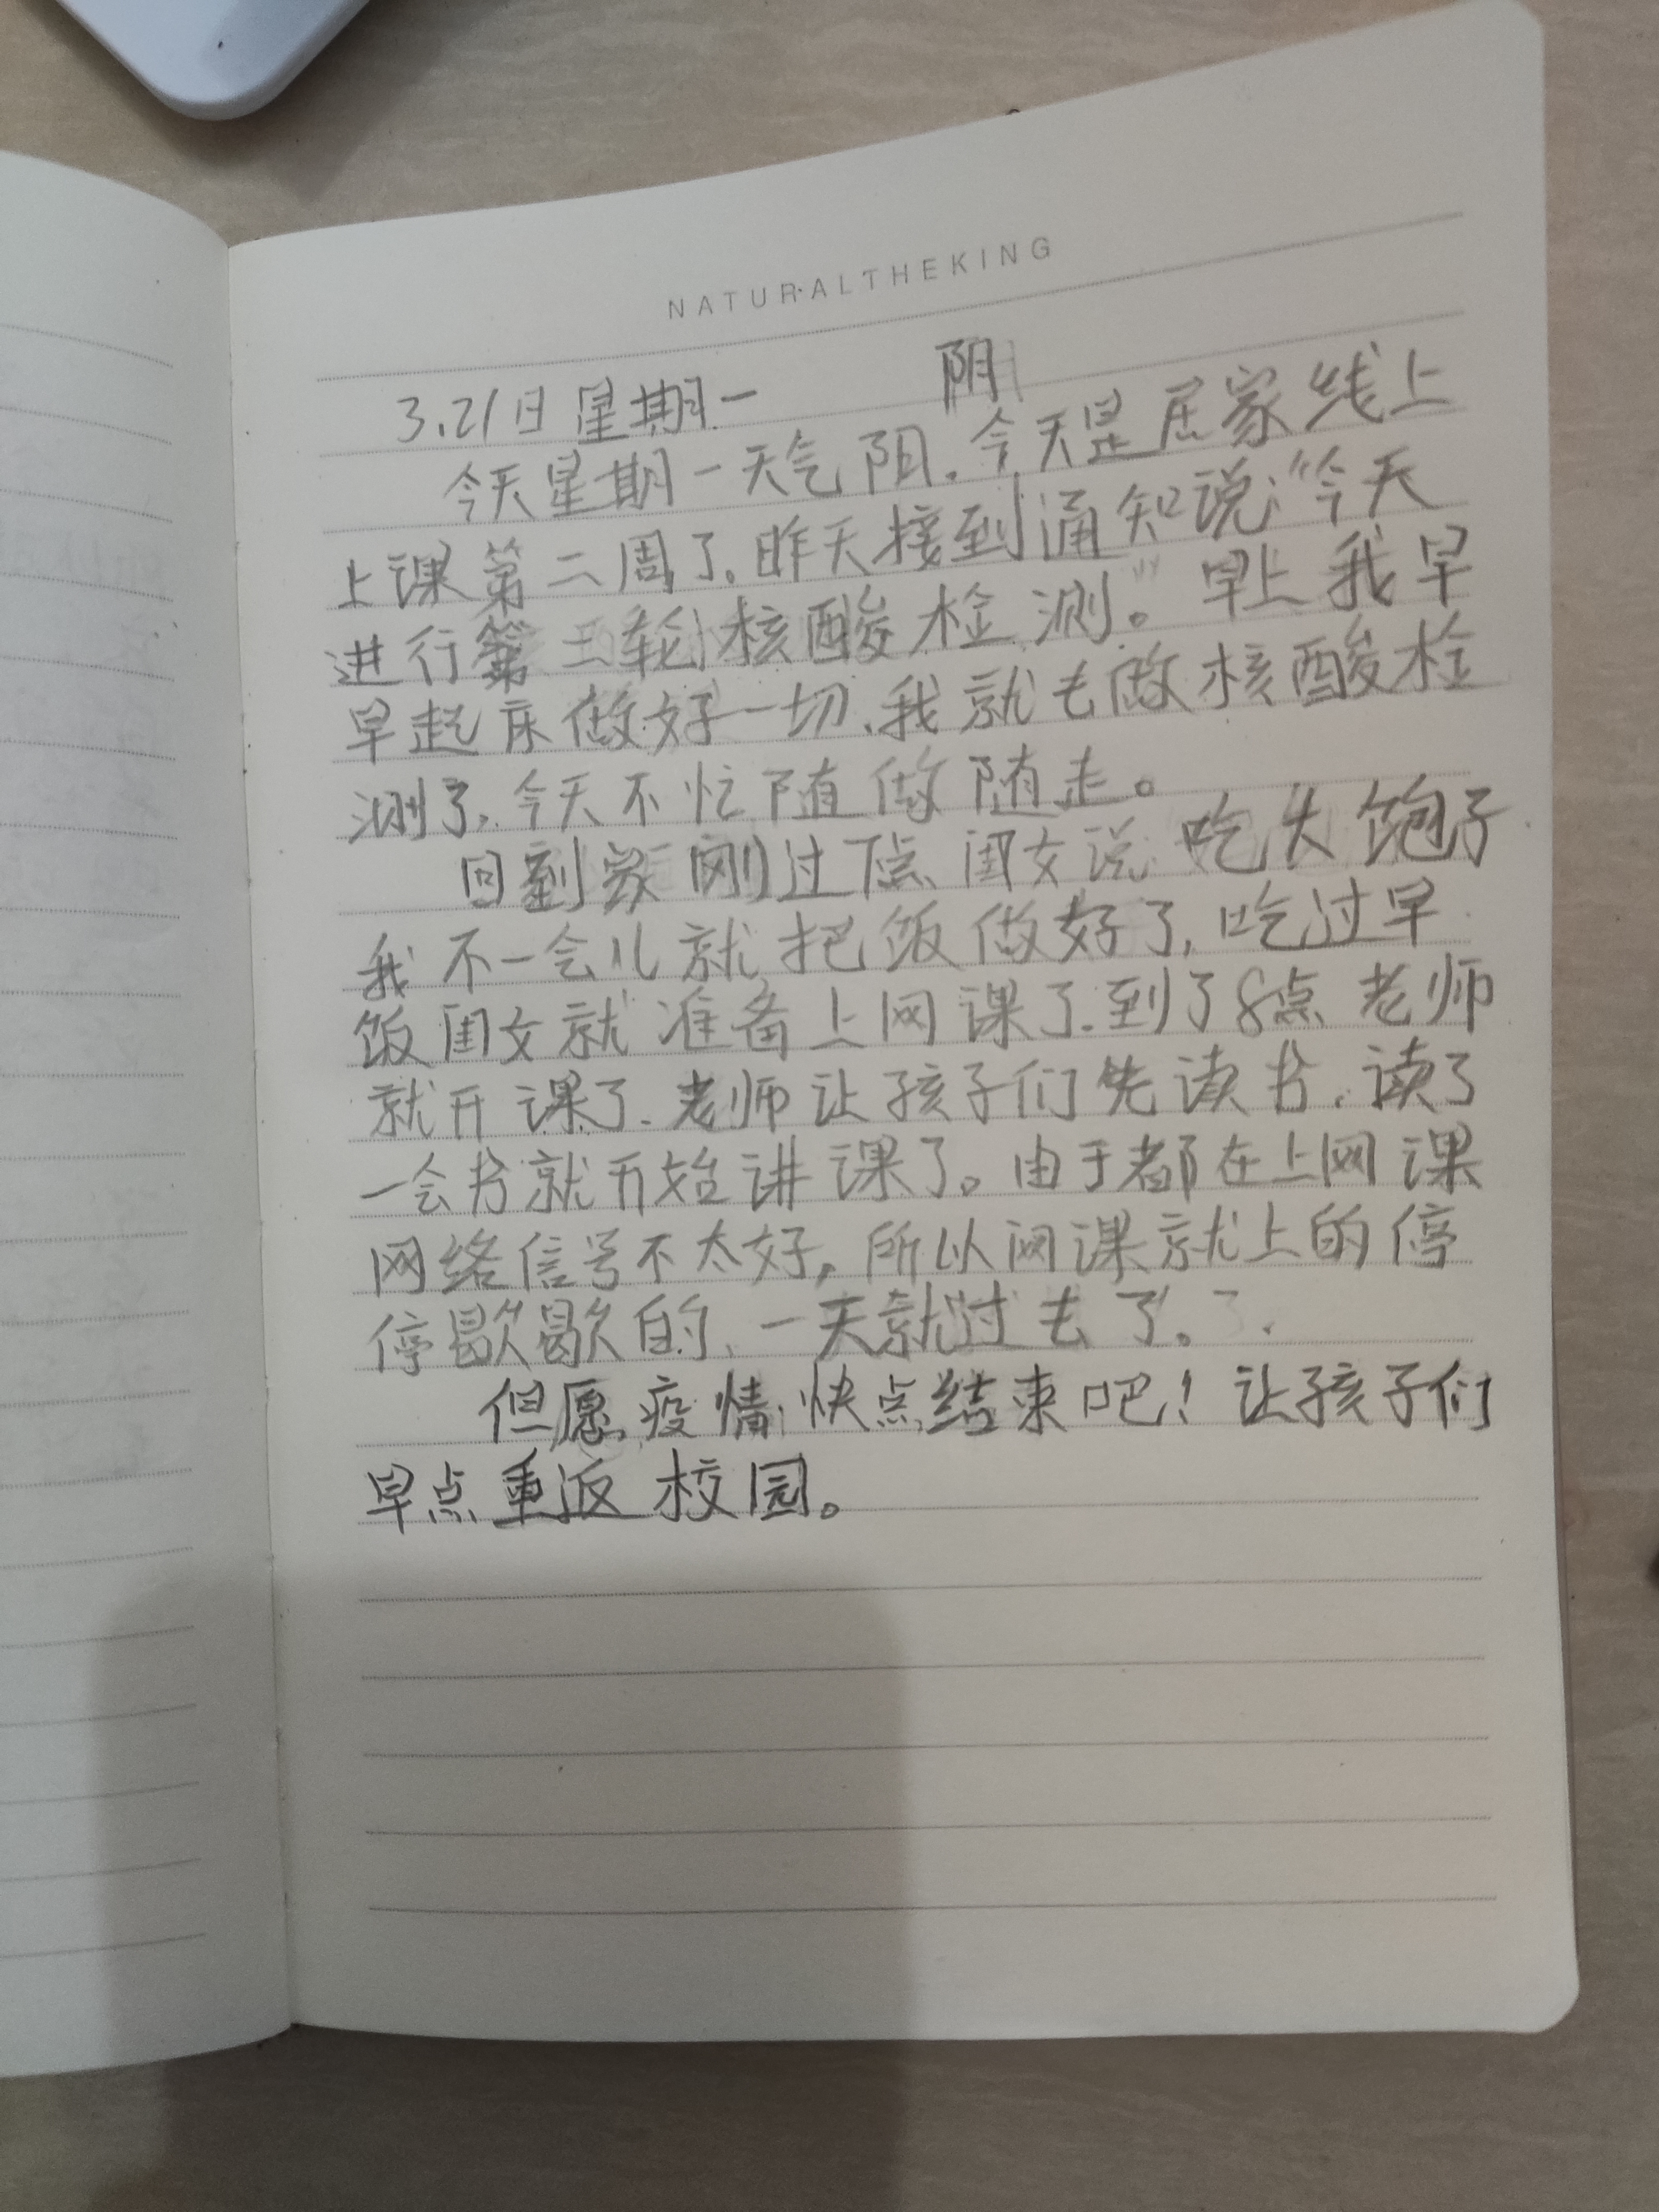 NATURALTHEKING
3.21日星期一 阴
今天星期一天气阴.今天是居家线上
上课第二周了.昨天接到通知说:“今天
进行第三轮核酸检测。”早上我早
早起床做好一切.我就去做核酸检
测了.今天不忙随做随走。
回到家刚过 闺女说 吃大饱子
我不一会儿就把饭做好了,吃过早
饭闺女就准备上网课了.到了8点老师
就开课了.老师让孩子们先读书.读了
一会书就开始讲课了。由于都在上网课
网络信号不太好,所以网课就上的停
停歇歇的、一天就过去了。
但愿疫情快点结束吧!让孩子们
早点重返校园。